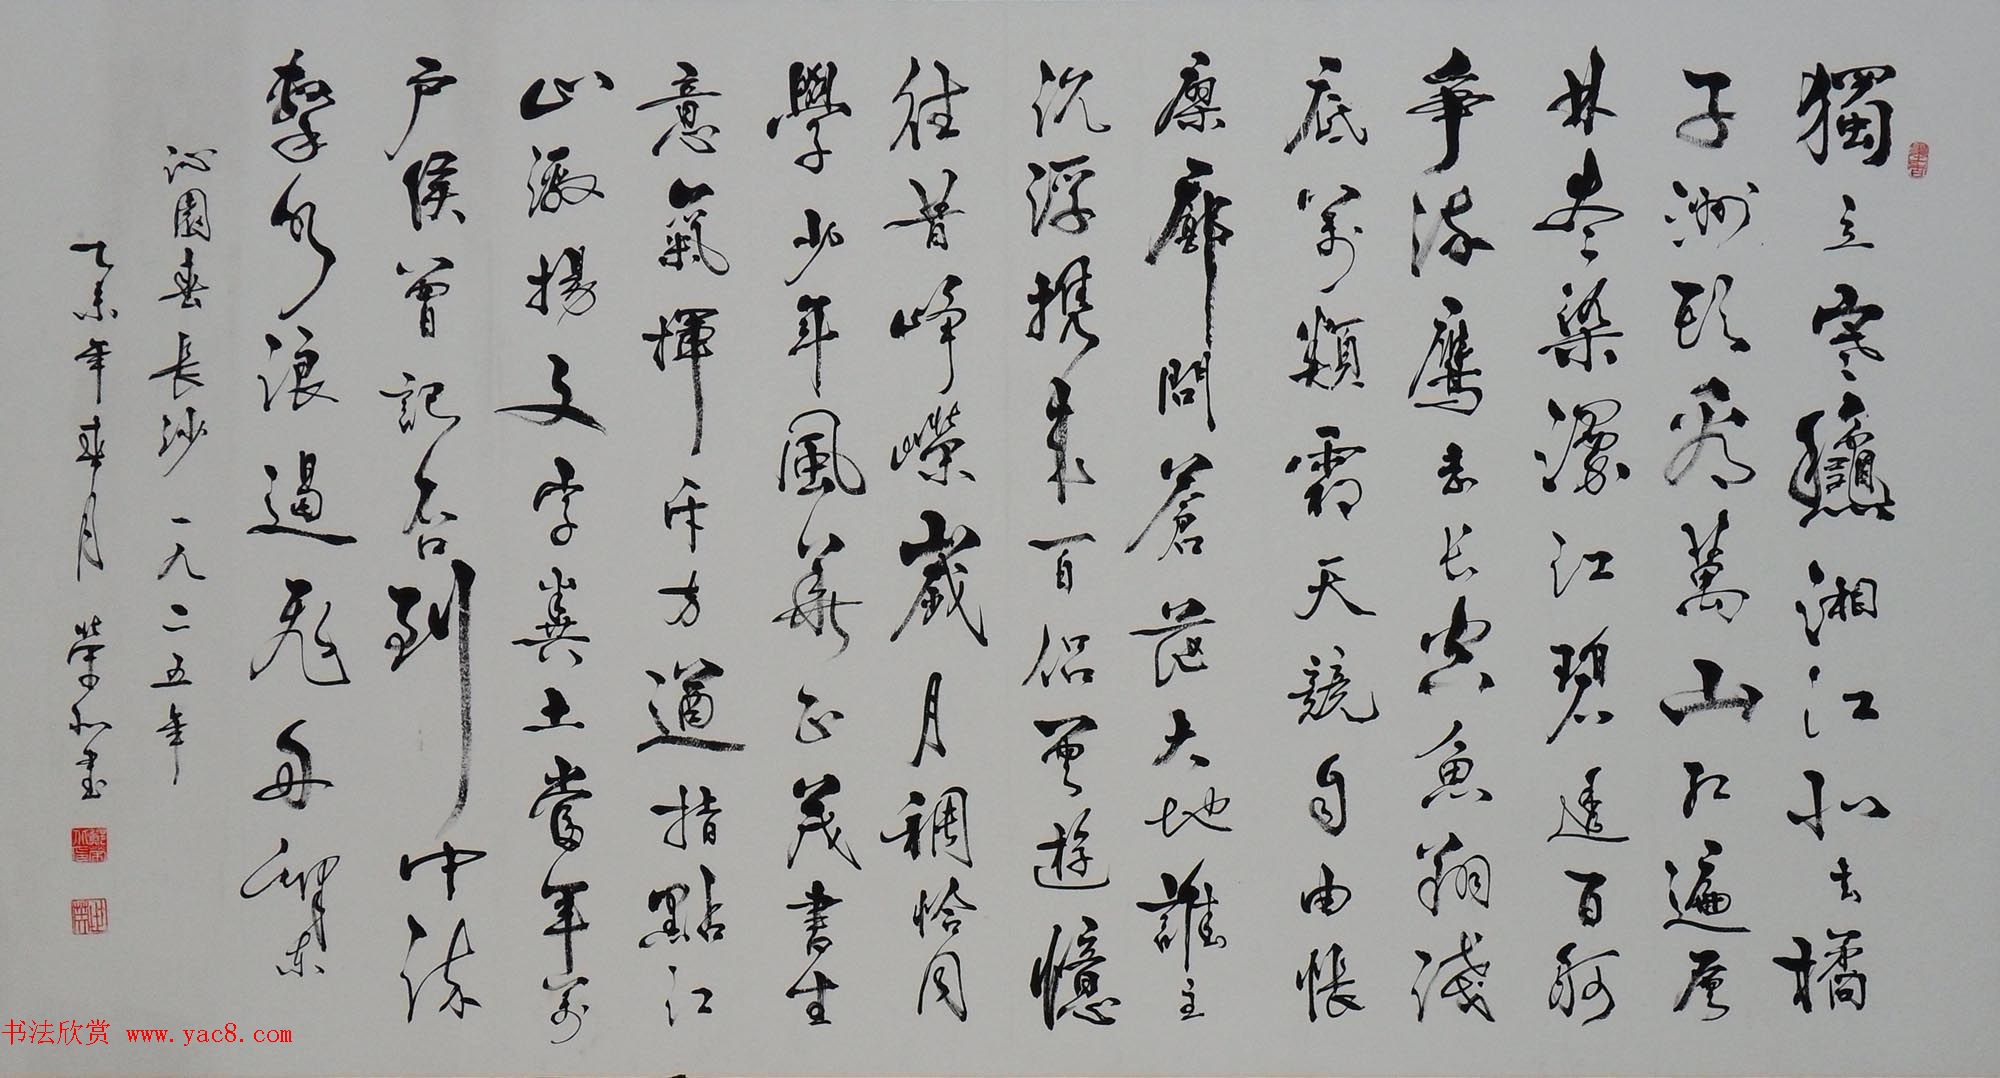 獨立寒龝湘江北去橘
子洲頭看萬山紅遍層
林尽染漫江碧透百舸
爭流鷹击長空魚翔淺
底万類霜天競自由悵
寥廓問蒼茫大地誰主
沉浮携来百侣曾遊憶
往昔崢嶸歲月稠恰同
學少年風華正茂書生
意氣揮斥方遒指點江
山激揚文字糞土當年万
户侯曾記否到中流
擊水浪遏飛舟
沁園春長沙一九二五年
乙未年春月榮和書
书法欣赏 www.yac8.com